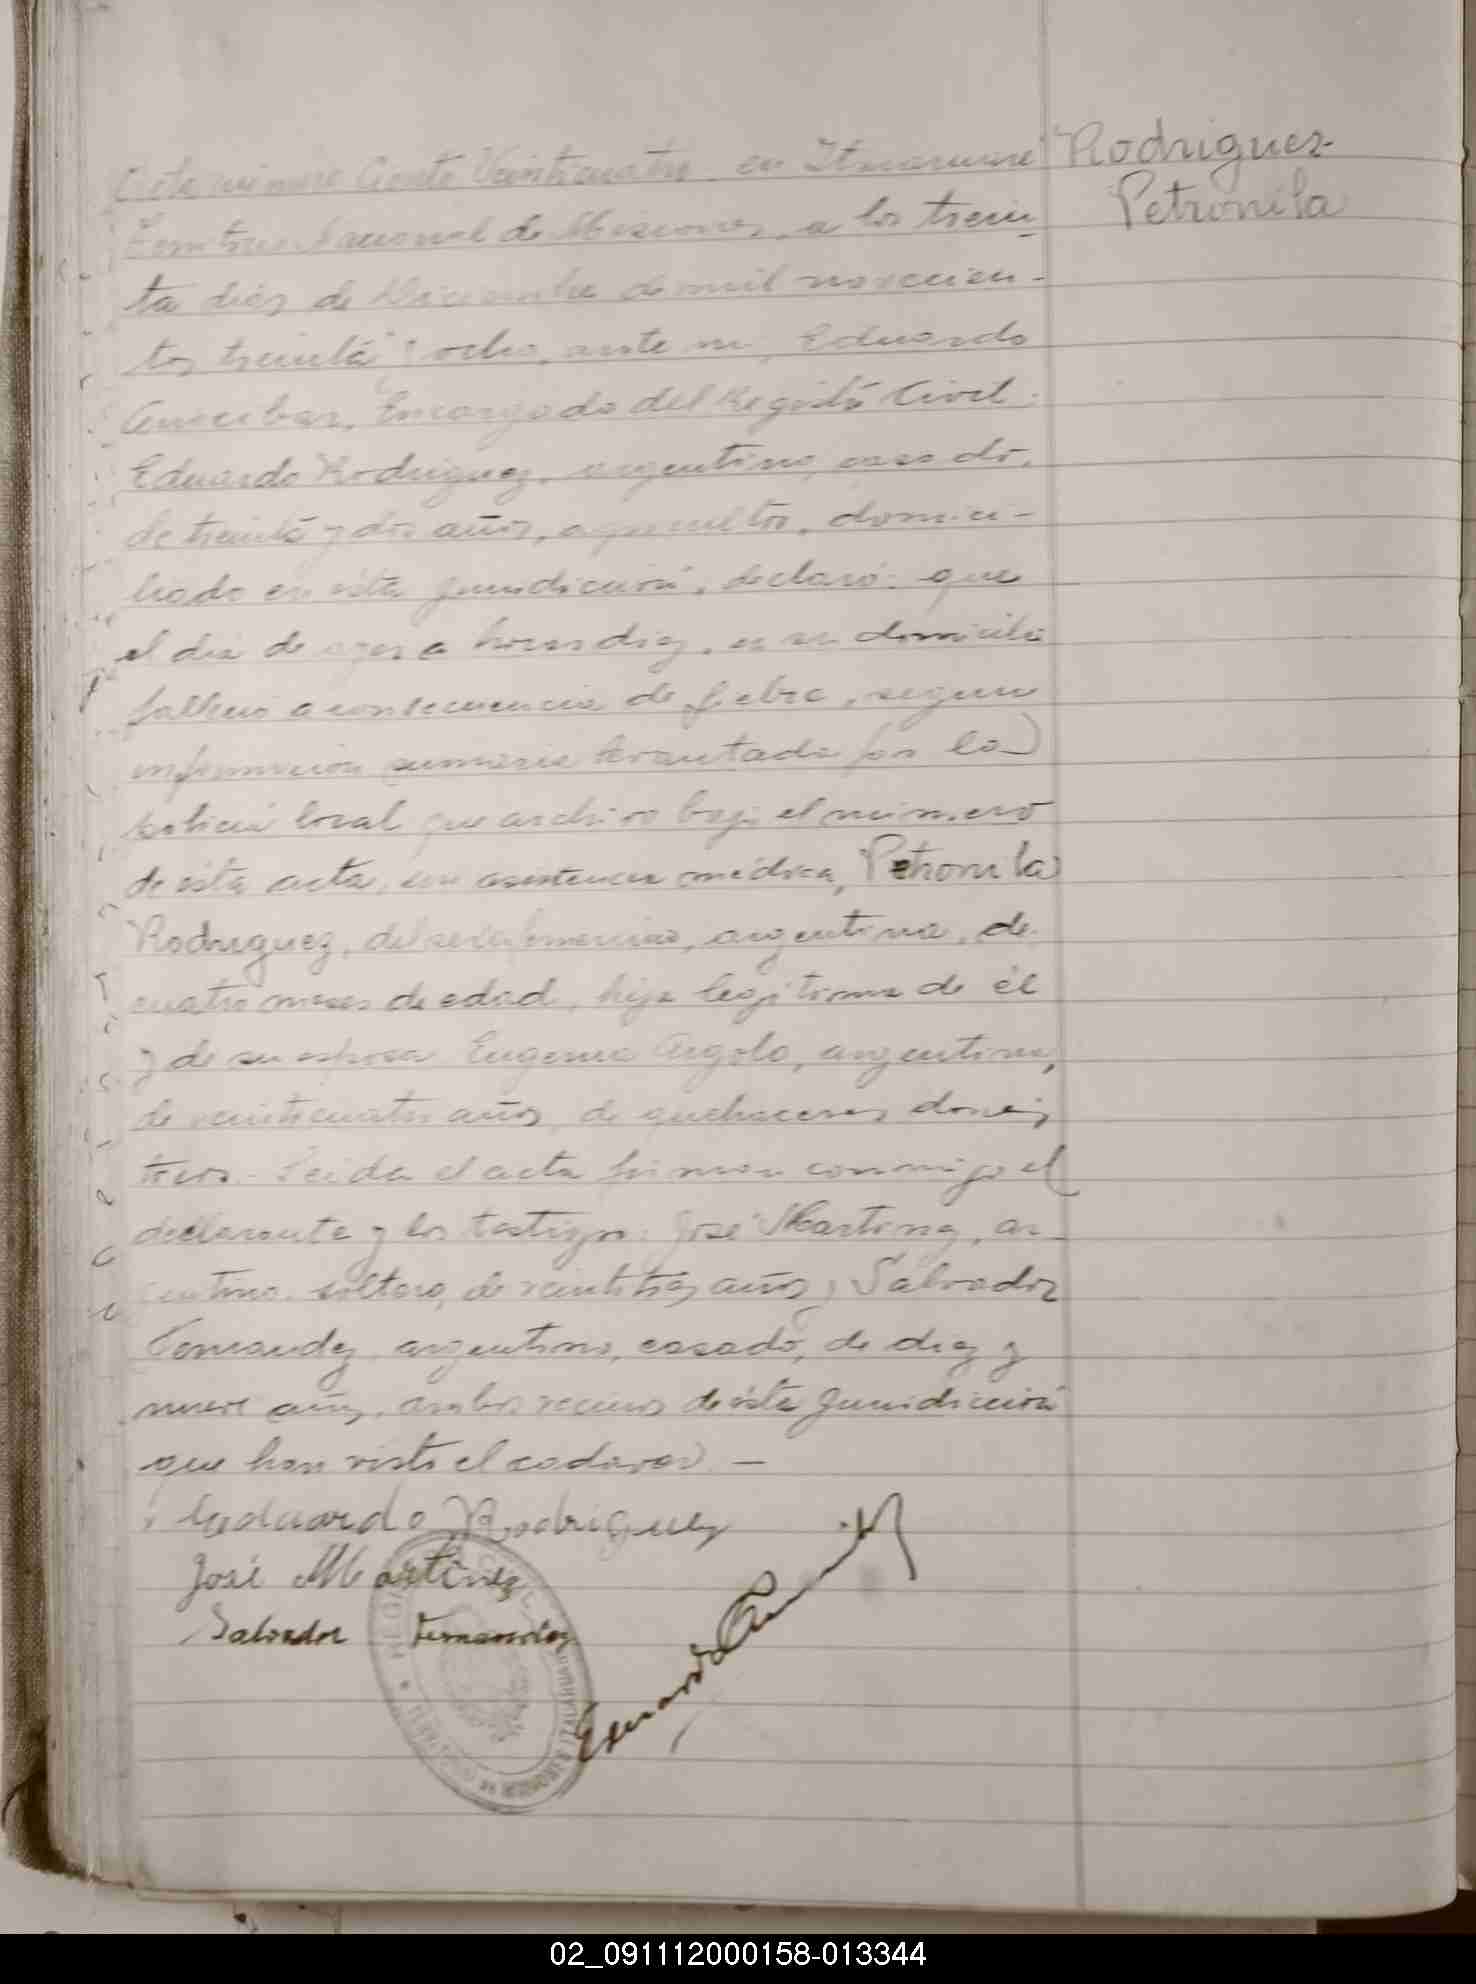 Acta número Ciento Veinticuatro en Itacaruaré
Rodriguez
Petronila
Territorio Nacional de Misiones, a los trein-
ta días de Diciembre de mil novecien-
tos treinta y ocho, ante mi, Eduardo
Encargado del Registro Civil:
Eduardo Rodriguez, argentino, casado,
de treinta y dos años, agricultor, domici-
liado en ésta jurisdicción, declaró: que
el día de ayer a horas diez, en su domicilio
falleció a consecuencia de fiebre, segun
información sumaria levantada por la
policia local que archivo bajo el número
de ésta acta, sin asistencia médica, Petronila
Rodriguez, del sexo femenino, argentina, de
cuatro meses de edad, hija legitima de él
y de su esposa Eugenia Argolo, argentina,
de veinticuatro años, de quehaceres domés
ticos. Leida el acta firman conmigo el
declarante y los testigos: José Martinez, ar
gentino, soltero, de veintitres años y Salvador
Fernandez, argentino, casado, de diez y
nueve años, ambos vecinos de ésta jurisdicción
que han visto el cadaver. —
Eduardo Rodriguez
José Martinez
Salvador Fernandez
Eduardo
02_091112000158-013344